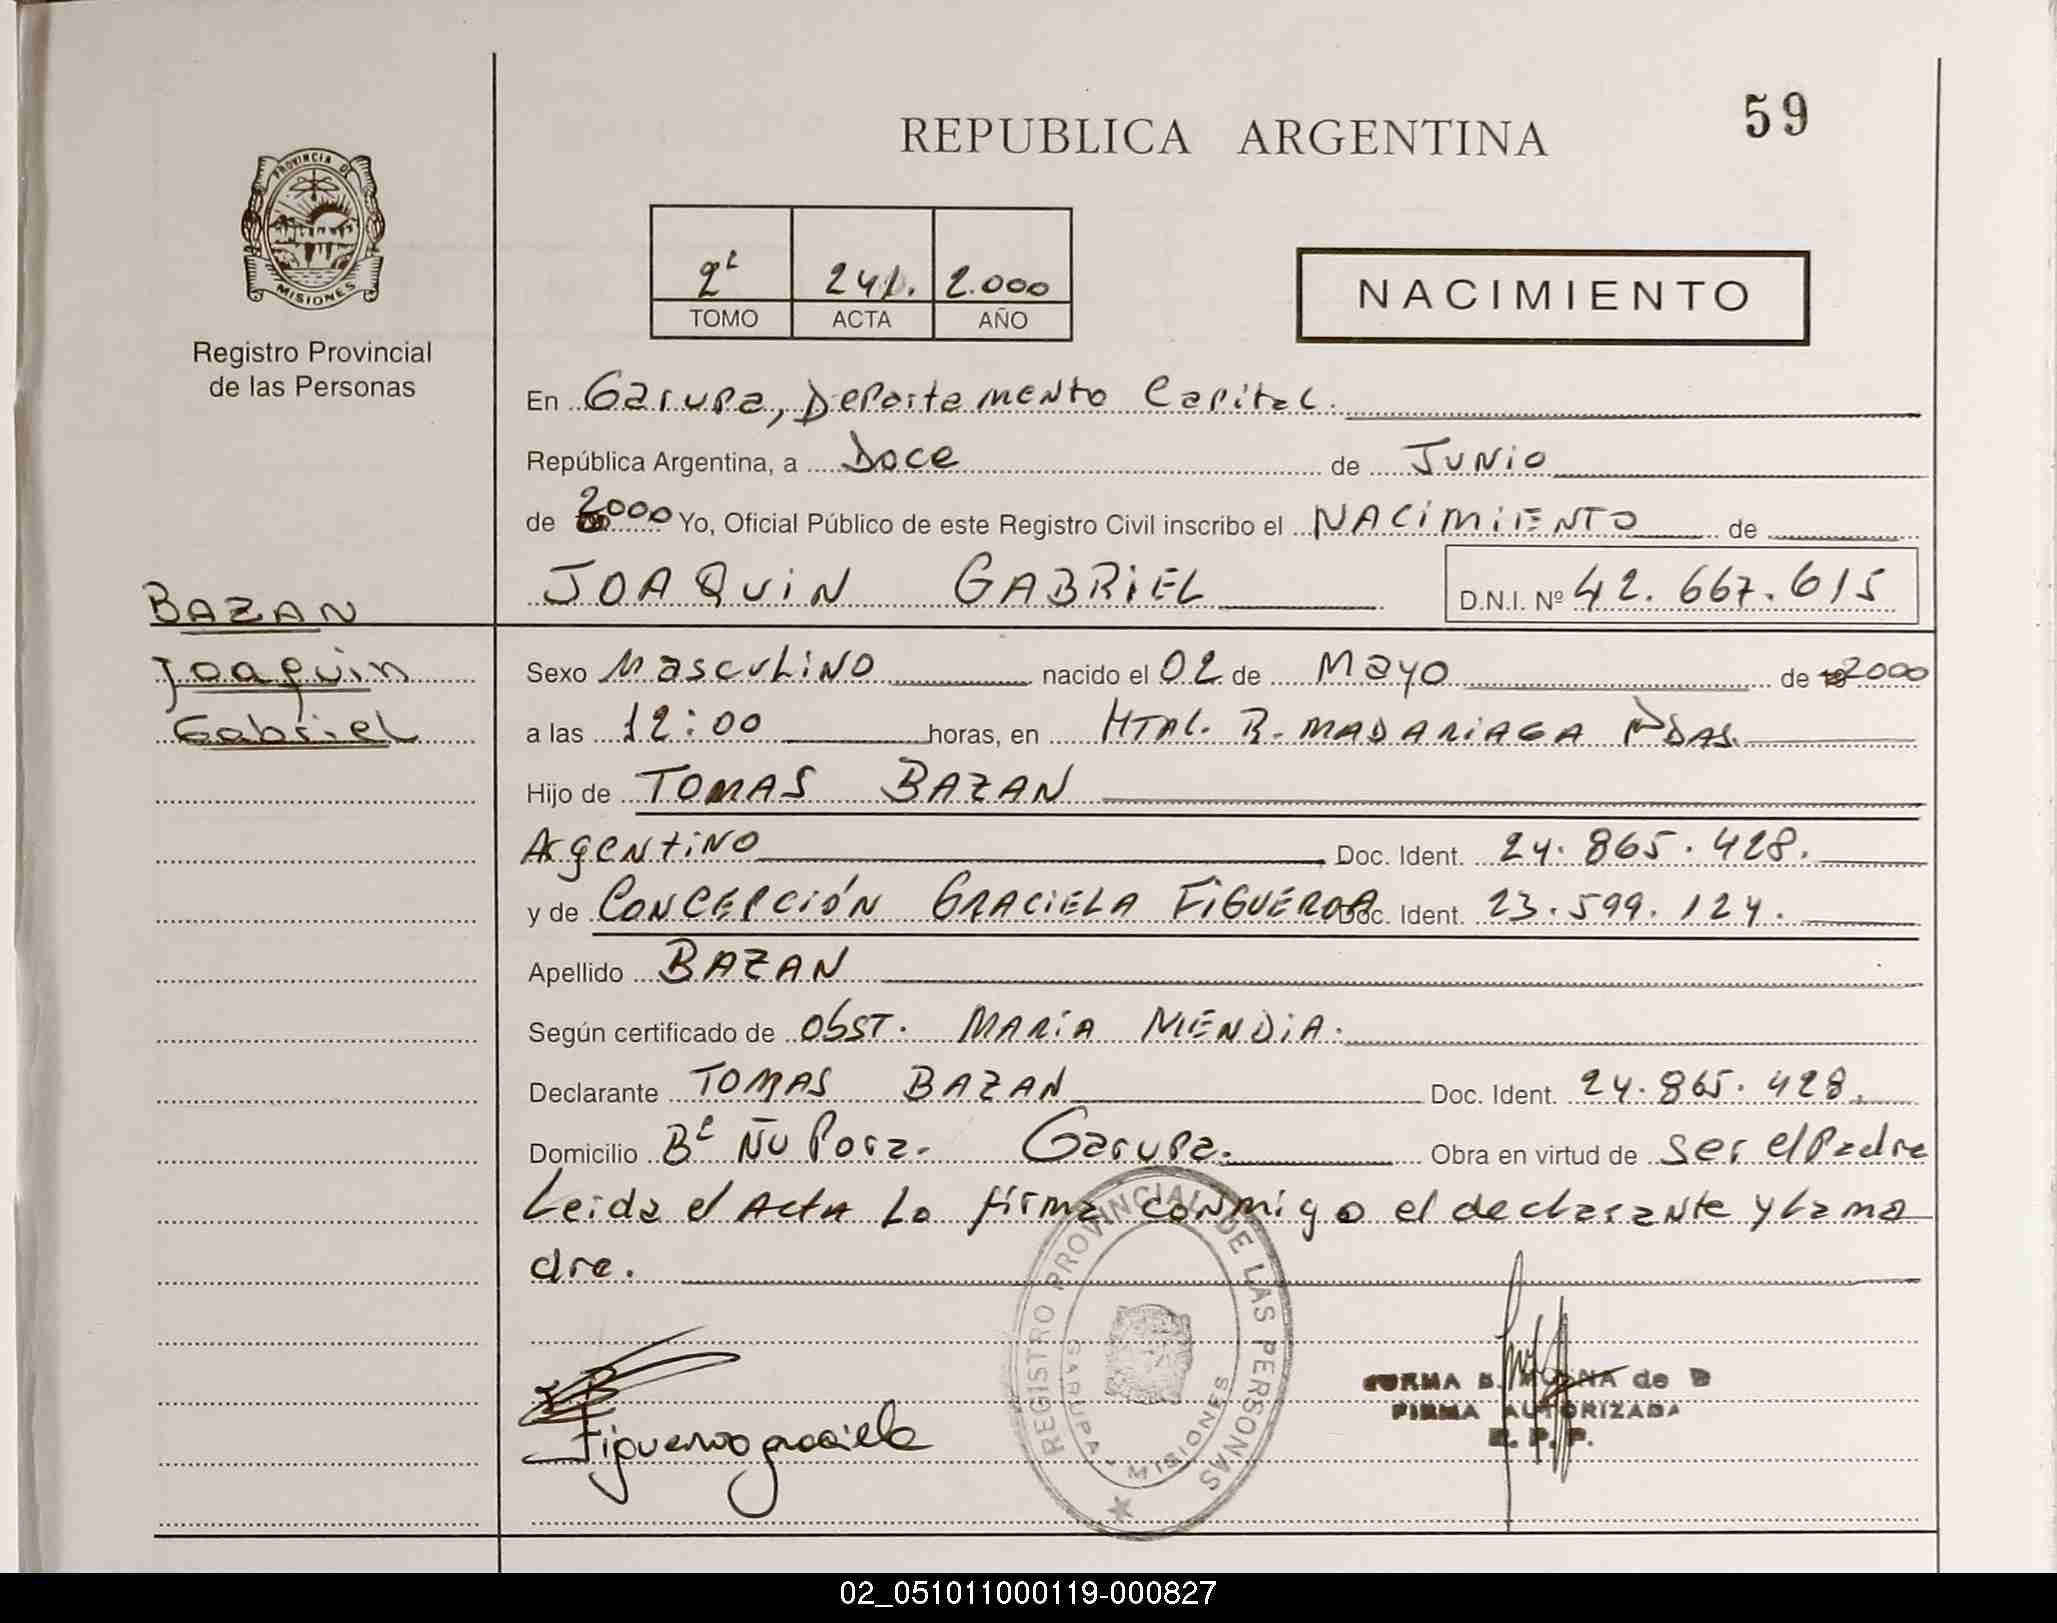 59
REPUBLICA ARGENTINA
PROVINCIA DE
MISIONES
Registro Provincial
de las Personas
2º 241. 2.000
TOMO ACTA AÑO
NACIMIENTO
En Garupa, Departamento Capital.
República Argentina, a Doce de Junio
de 2000 Yo, Oficial Público de este Registro Civil inscribo el NACIMIENTO de
JOAQUIN GABRIEL D.N.I. Nº 42.667.615
BAZAN
Joaquin
Gabriel
Sexo Masculino nacido el 02 de Mayo de 2000
a las 12:00 horas, en HTAL. R. MADARIAGA PDAS.
Hijo de TOMAS BAZAN
Argentino Doc. Ident. 24.865.428.
y de CONCEPCIÓN GRACIELA FIGUEROA Doc. Ident. 23.599.124.
Apellido BAZAN
Según certificado de Obst. MARÍA MENDIA.
Declarante TOMAS BAZAN Doc. Ident. 24.865.428.
Domicilio Bº Ñu Pora. Garupa. Obra en virtud de ser el Padre
Leida el Acta Lo firma conmigo el declarante y La ma
dre.
REGISTRO PROVINCIAL DE LAS PERSONAS
GARUPA - MISIONES
Figueroa graciela
de D
FIRMA AUTORIZADA
R. P. P.
02_051011000119-000827